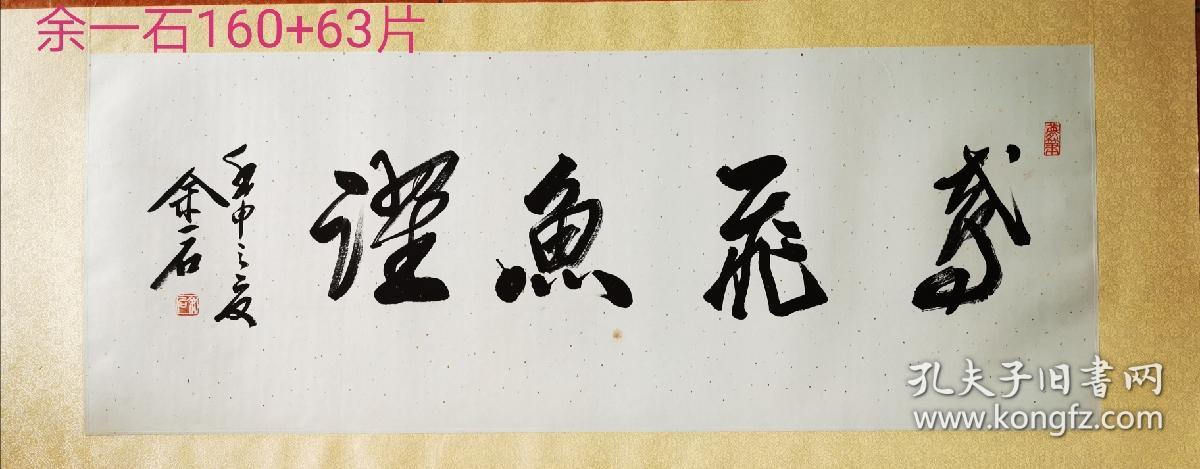 余一石160+63片
鸢飛魚躍
壬申之夏
余一石
孔夫子旧書网
www.kongfz.com